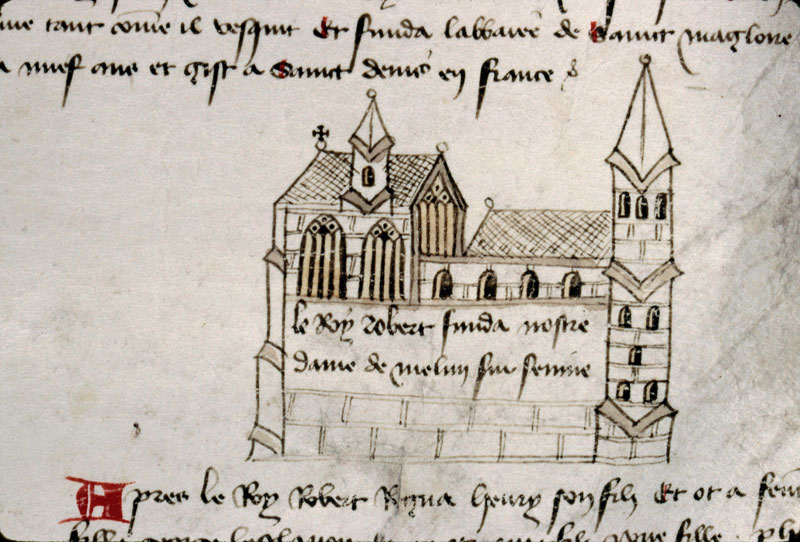 tant come il vesquit Et funda labbaiee de Sainct magloire
a nuef ans et gist a Sainct denis en france
le Roy Robert funda nostre
dame de melun sur seinne
Apres le Roy Robert Regna henry son filz Et ot a
fille